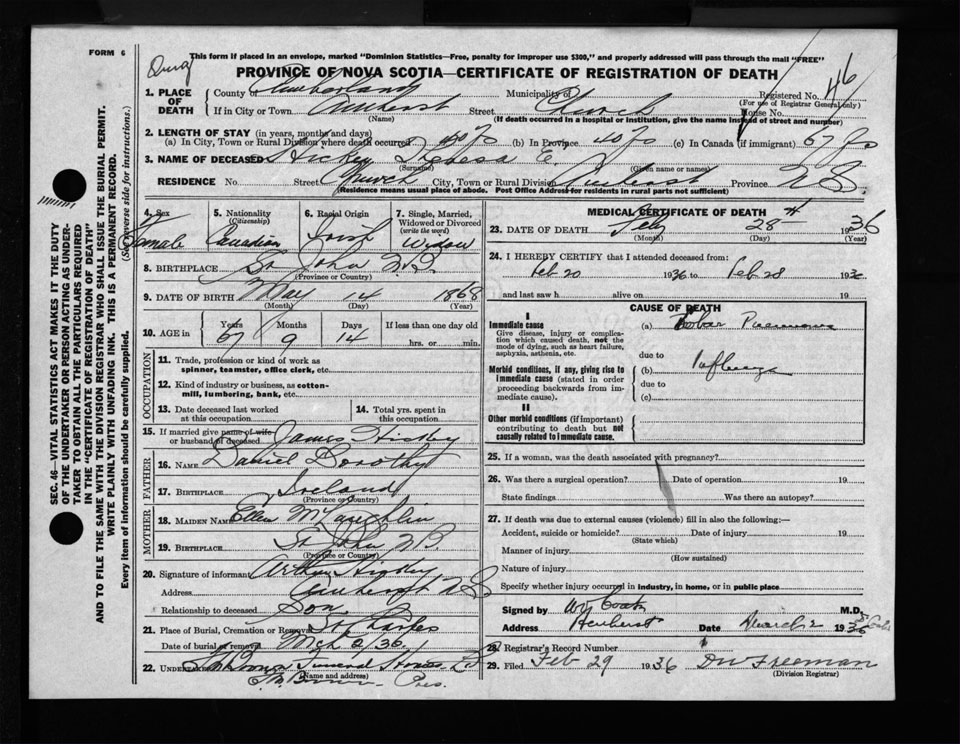 FORM 6
This form if placed in an envelope, marked "Dominion Statistics—Free, penalty for improper use $300," and properly addressed will pass through the mail "FREE"
PROVINCE OF NOVA SCOTIA—CERTIFICATE OF REGISTRATION OF DEATH
1. PLACE OF DEATH
County of Cumberland Municipality of Registered No. 46
(For use of Registrar General only)
If in City or Town Amherst Street Church House No.
(Name) (If death occurred in a hospital or institution, give the name instead of street and number)
2. LENGTH OF STAY (in years, months and days)
(a) In City, Town or Rural Division where death occurred 40 (b) In Province 40 (c) In Canada (if immigrant) 67
3. NAME OF DECEASED Hickey E.
(Surname) (Given name or names)
RESIDENCE No. Street Church City, Town or Rural Division Amherst Province N.S.
(Residence means usual place of abode. Post Office Address for residents in rural parts not sufficient)
4. Sex Female
5. Nationality (Citizenship) Canadian
6. Racial Origin Irish
7. Single, Married, Widowed or Divorced (write the word) Widow
8. BIRTHPLACE St John N.B.
(Province or Country)
9. DATE OF BIRTH May 14 1868
(Month) (Day) (Year)
10. AGE in Years Months Days If less than one day old
67 9 14 hrs. or min.
OCCUPATION
11. Trade, profession or kind of work as spinner, teamster, office clerk, etc.
12. Kind of industry or business, as cotton-mill, lumbering, bank, etc.
13. Date deceased last worked at this occupation
14. Total yrs. spent in this occupation
15. If married give name of wife or husband of deceased James
FATHER
16. NAME Daniel Dorothy
17. BIRTHPLACE Ireland
(Province or Country)
MOTHER
18. MAIDEN NAME Ellen McLaughlin
19. BIRTHPLACE St John N.B.
(Province or Country)
20. Signature of informant Arthur
Address Amherst N S
Relationship to deceased Son
21. Place of Burial, Cremation or Removal St Charles
Date of burial or removal Mch 2/36
22. UNDERTAKER Funeral
(Name and address)
Brown Pres.
MEDICAL CERTIFICATE OF DEATH
23. DATE OF DEATH Feb 28th 1936
(Month) (Day) (Year)
24. I HEREBY CERTIFY that I attended deceased from:
Feb 20 1936 to Feb 28 1936
and last saw h alive on 19
CAUSE OF DEATH
I
Immediate cause
Give disease, injury or complication which caused death, not the mode of dying, such as heart failure, asphyxia, asthenia, etc.
(a) Lobar Pneumonia
due to
Morbid conditions, if any, giving rise to immediate cause (stated in order proceeding backwards from immediate cause).
(b) Influenza
due to
(c)
II
Other morbid conditions (if important) contributing to death but not causally related to immediate cause.
25. If a woman, was the death associated with pregnancy?
26. Was there a surgical operation? Date of operation 19
State findings Was there an autopsy?
27. If death was due to external causes (violence) fill in also the following:—
Accident, suicide or homicide? Date of injury 19
(State which)
Manner of injury
(How sustained)
Nature of injury
Specify whether injury occurred in industry, in home, or in public place
Signed by M.D.
Address Amherst Date March 2 1936
28. Registrar's Record Number
29. Filed Feb 29 1936 D W Freeman
(Division Registrar)
SEC. 46—VITAL STATISTICS ACT MAKES IT THE DUTY
OF THE UNDERTAKER OR PERSON ACTING AS UNDER-
TAKER TO OBTAIN ALL THE PARTICULARS REQUIRED
IN THE "CERTIFICATE OF REGISTRATION OF DEATH"
AND TO FILE THE SAME WITH THE DIVISION REGISTRAR WHO SHALL ISSUE THE BURIAL PERMIT.
WRITE PLAINLY WITH UNFADING INK. THIS IS A PERMANENT RECORD.
Every item of information should be carefully supplied. (See reverse side for instructions.)